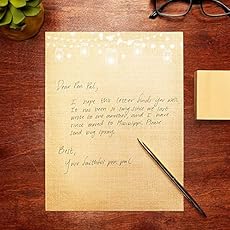 Dear Pen Pal,
I hope this letter finds you well.
It has been so long since we last
wrote to one another, and I have
since moved to Mississippi. Please
send bug spray.
Best,
Your faithful pen pal